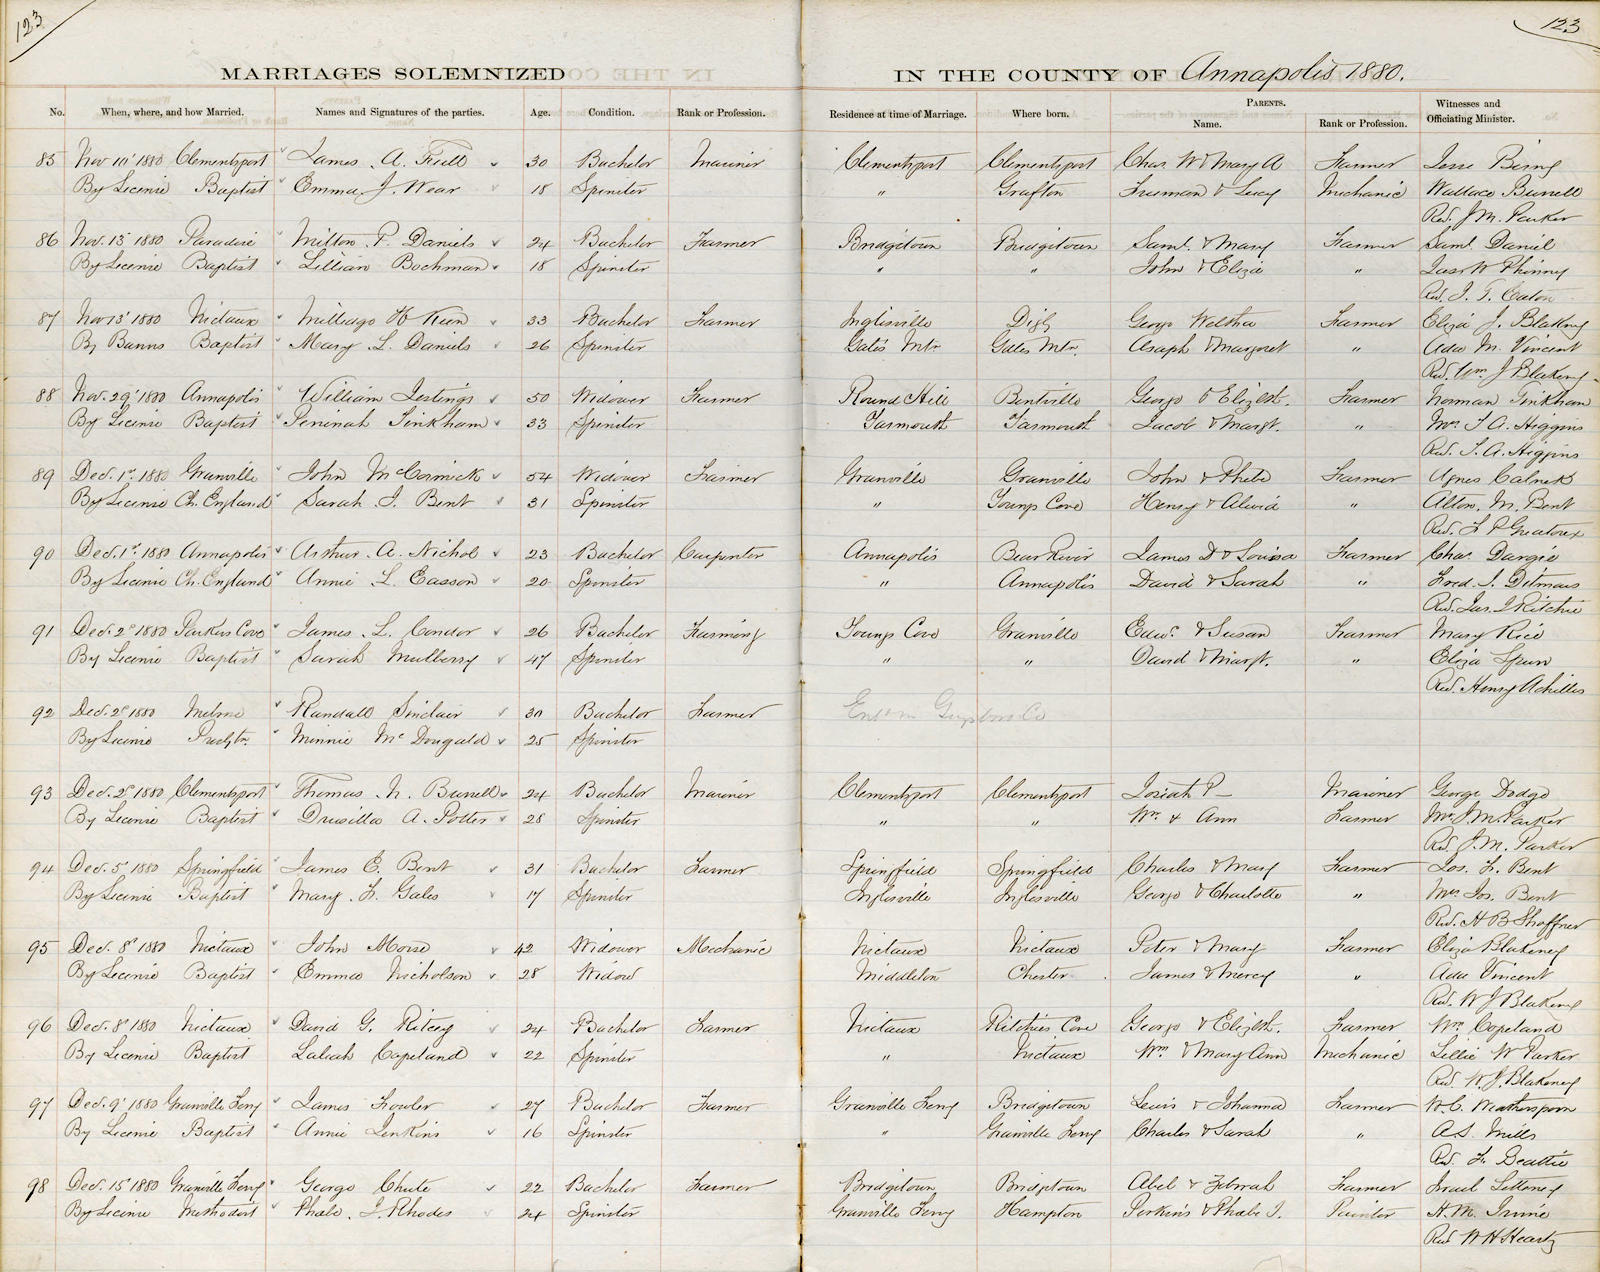 123
123
MARRIAGES SOLEMNIZED IN THE COUNTY OF Annapolis 1880.
No. When, where, and how Married. Names and Signatures of the parties. Age. Condition. Rank or Profession. Residence at time of Marriage. Where born. PARENTS. Name. Rank or Profession. Witnesses and Officiating Minister.
85 Nov 10' 1880 Clementsport James A. 30 Bachelor Mariner Clementsport Clementsport Chas W & Mary A Farmer Jesse
By License Baptist Emma J. Wear 18 Spinster " Grafton Freeman & Lucy Mechanic Wallace Burrell
Rev. J. M. Parker
86 Nov. 13' 1880 Paradise Milton P. Daniels 24 Bachelor Farmer Bridgetown Bridgetown Saml. & Mary Farmer Saml. Daniel
By License Baptist Lillian Bochman 18 Spinster " " John & Eliza " Jas W Phinney
Rev. J. T. Eaton
87 Nov 13' 1880 Nictaux H 33 Bachelor Farmer Inglisville George Farmer Eliza J. Blakeney
By Banns Baptist Mary L. Daniels 26 Spinster Gates Mtn Gates Mtn. Asaph & Margret " Ada M. Vincent
Rev. Wm J Blakeney
88 Nov. 29' 1880 Annapolis William 50 Widower Farmer Round Hill Bentville George & Elizbt. Farmer Norman Tinkham
By License Baptist Peninah Tinkham 33 Spinster Yarmouth Yarmouth Jacob & Margt. " Mrs T. A. Higgins
Rev. T. A. Higgins
89 Dec. 1st 1880 Granville John McCormick 54 Widower Farmer Granville Granville John & Phebe Farmer Agnes Calnek
By License Ch. England Sarah J. Bent 31 Spinster " Youngs Cove Henry & " Alton. M. Bent
Rev. F P Greatorex
90 Dec. 1st 1880 Annapolis Arthur A. Nichol 23 Bachelor Carpenter Annapolis Bear River James D & Louisa Farmer Chas. Dargie
By License Ch. England Annie L. Easson 20 Spinster " Annapolis David & Sarah " Fred. S. Ditmars
Rev. Jas. J Ritchie
91 Dec. 2d 1880 Parkers Cove James L. Condor 26 Bachelor Farming Youngs Cove Granville Edwd. & Susan Farmer Mary Rice
By License Baptist Sarah Mulberry 47 Spinster " " David & Margt. " Eliza Spurr
Rev. Henry Achilles
92 Dec. 2d 1880 Melrose Randall Sinclair 30 Bachelor Farmer Ent in Guysboro Co
By License Presbtn. Minnie McDougald 25 Spinster
93 Dec. 2d 1880 Clementsport Thomas N. Burrell 24 Bachelor Mariner Clementsport Clementsport Josiah P— Mariner George Dodge
By License Baptist Drusilla A. Potter 28 Spinster " " Wm. & Ann Farmer Mrs. J. M. Parker
Rev. J. M. Parker
94 Dec. 5' 1880 Springfield James E. Bent 31 Bachelor Farmer Springfield Springfield Charles & Mary Farmer Jos. F. Bent
By License Baptist Mary F. Gales 17 Spinster Inglisville Inglisville George & Charlotte " Mrs Jos. Bent
Rev. H B Shaffner
95 Dec. 8' 1880 Nictaux John Morse 42 Widower Mechanic Nictaux Nictaux Peter & Mary Farmer Eliza Blakeney
By License Baptist Emma Nicholson 28 Widow Middleton Chester James & Mercy " Ada Vincent
Rev. W J Blakeney
96 Dec. 8' 1880 Nictaux David G. Ritcey 24 Bachelor Farmer Nictaux Ritchies Cove George & Elizbt. Farmer Wm. Copeland
By License Baptist Laleah Copeland 22 Spinster " Nictaux Wm. & Mary Ann Mechanic Lillie W Parker
Rev. W. J. Blakeney
97 Dec. 9' 1880 Granville Ferry James Fowler 27 Bachelor Farmer Granville Ferry Bridgetown Lewis & Johanna Farmer W. C. Weatherspoon
By License Baptist Annie Jenkins 16 Spinster " Granville Ferry Charles & Sarah " A. S. Mills
Rev. F. Beattie
98 Dec. 15' 1880 Granville Ferry George Chute 22 Bachelor Farmer Bridgetown Bridgetown Abel & Farmer Israel Letteney
By License Methodist Phebe J. Rhodes 24 Spinster Granville Ferry Hampton Perkins & Phebe J. Painter H. M. Irvine
Rev W H Heartz